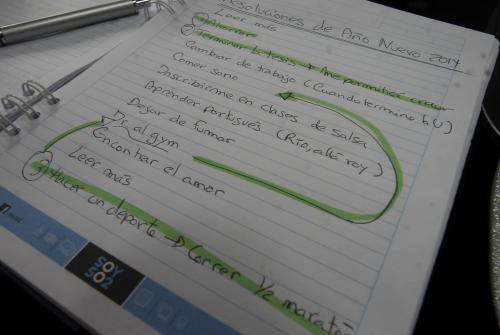 Resoluciones de Año Nuevo 2014
Leer más
Ahorrar
Terminar la tesis
Cambiar de trabajo (Cuando termino la U)
Comer sano
Inscribirme en clases de salsa
Aprender portugués (Rio, allá voy)
Dejar de fumar
Ir al gym
Encontrar el amor
Leer más
Hacer un deporte → Correr 1/2 marató-
SOY
502